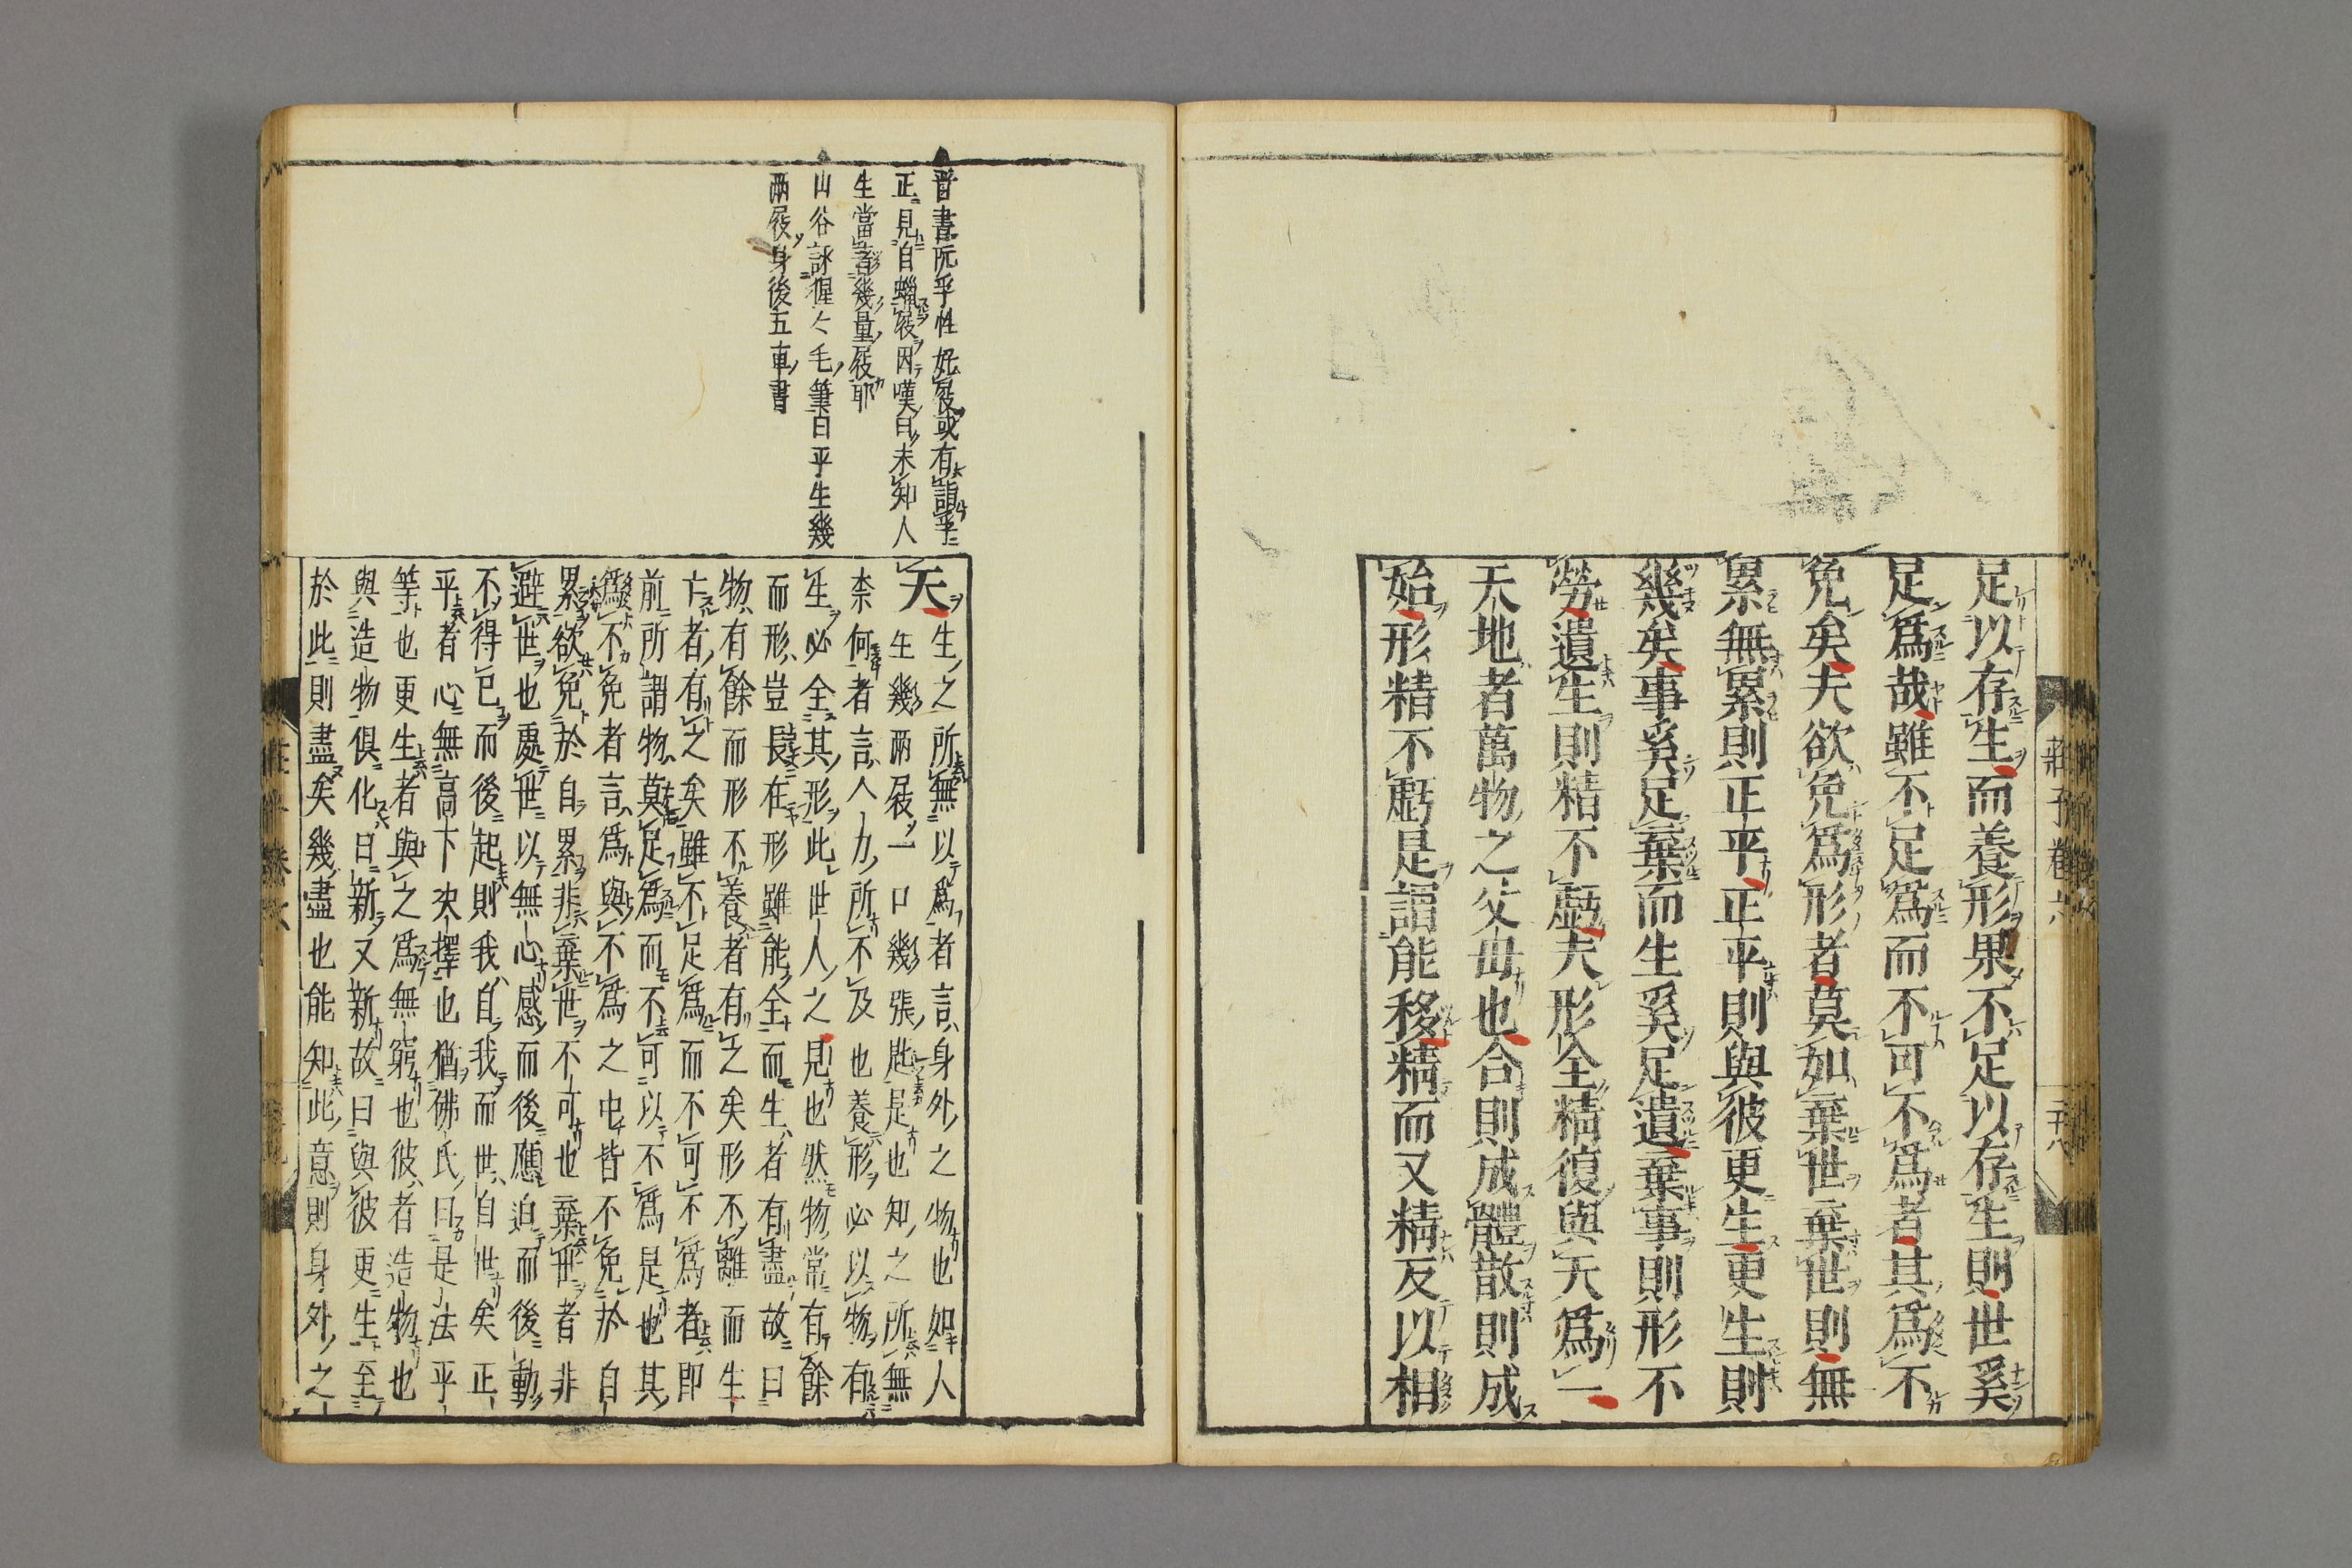 足以存生而養形果不足以存生則世奚
足爲哉雖不足爲而不可不爲者其爲不
免矣夫欲免爲形者莫如棄世棄世則無
累無累則正平正平則與彼更生更生則
幾矣事奚足棄而生奚足遺棄事則形不
勞遺生則精不虧夫形全精復與天爲一
天地者萬物之父毋也合則成體散則成
始形精不虧是謂能移精而又精反以相
莊子卷六
二十八
晋書阮孚性好屐或有詣孚
正見自蠟屐因嘆曰未知人
生當著幾量屐耶
山谷詠猩々毛筆曰平生幾
兩屐身後五車書
天生之所無以爲者言身外之物也如人
生幾兩屐一口幾張匙是也知之所無
柰何者言人力所不及也養形必以物有
生必全其形此世人之見也然物常有餘
而形豈長在形雖能全而生者有盡故曰
物有餘而形不養者有之矣形不離而生
亡者有之矣雖不足爲而不可不爲者即
前所謂物莫足爲而不可以不爲是也其
爲不免者言爲與不爲之中皆不免於自
累欲免於自累非棄世不可也棄世者非
避世也處世以無心感而後應迫而後動
不得已而後起則我自我而世自世矣正
平者心無高下决擇也猶佛氏曰是法平
等也更生者與之爲無窮也彼者造物也
與造物俱化日新又新故曰與彼更生至
於此則盡矣幾盡也能知此意則身外之